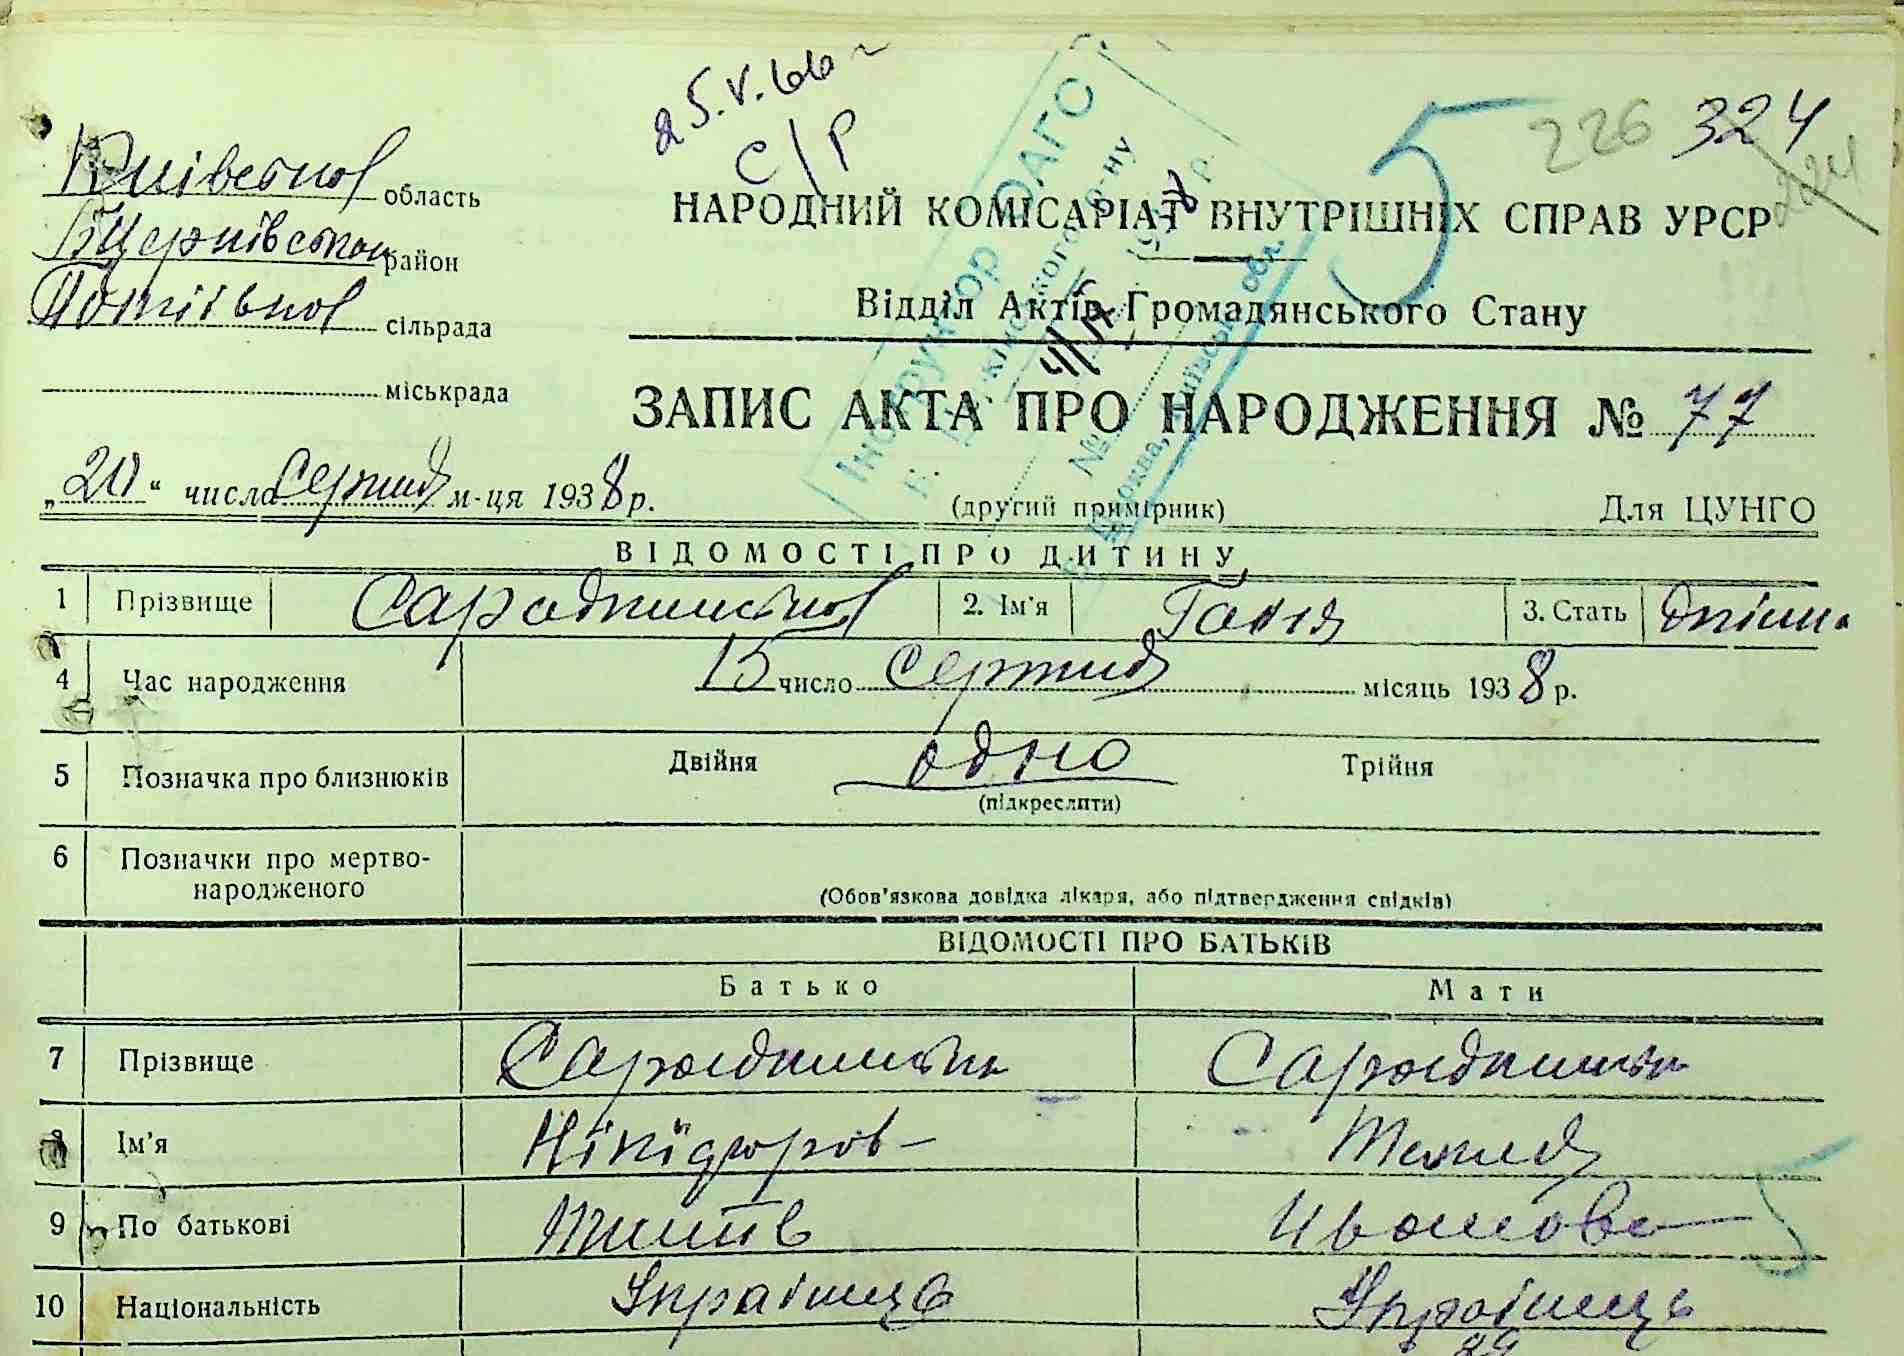 25.V.66
С/Р
226 324
224
5
Київської область
Б Церківської район
Потіївської сільрада
міськрада
НАРОДНИЙ КОМІСАРІАТ ВНУТРІШНІХ СПРАВ УРСР
Відділ Актів Громадянського Стану
ЗАПИС АКТА ПРО НАРОДЖЕННЯ № 77
„20“ числа серпня м-ця 1938 р.
(другий примірник) Для ЦУНГО
ВІДОМОСТІ ПРО ДИТИНУ
1 Прізвище 2. Ім'я Ганя 3. Стать
4 Час народження 15 число серпня місяць 1938 р.
5 Позначка про близнюків Двійня одно Трійня
(підкреслити)
6 Позначки про мертво-
народженого
(Обов'язкова довідка лікаря, або підтвердження свідків)
ВІДОМОСТІ ПРО БАТЬКІВ
Батько Мати
7 Прізвище
8 Ім'я Нікіфоров
9 По батькові Титів
10 Національність Українець Українець